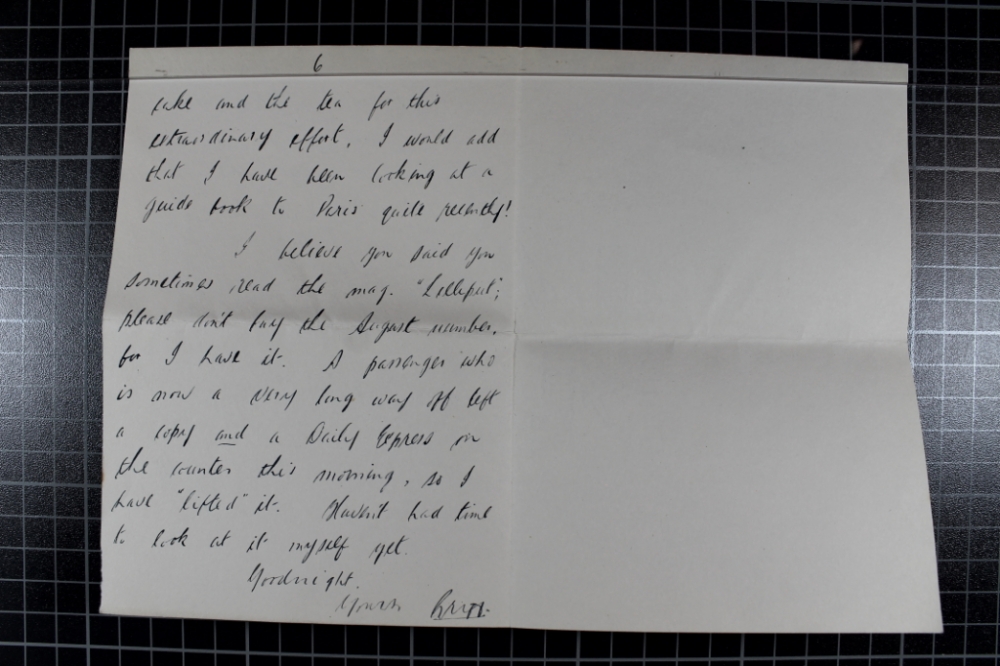 6
cake and the tea for this
extraordinary effort. I would add
that I have been looking at a
guide book to Paris quite recently!
I believe you said you
sometimes read the mag. "Lilliput";
please don't buy the August number,
for I have it. A passenger who
is now a very long way off left
a copy and a Daily Express on
the counter this morning, so I
have "lifted" it. Haven't had time
to look at it myself yet.
Goodnight.
Yours